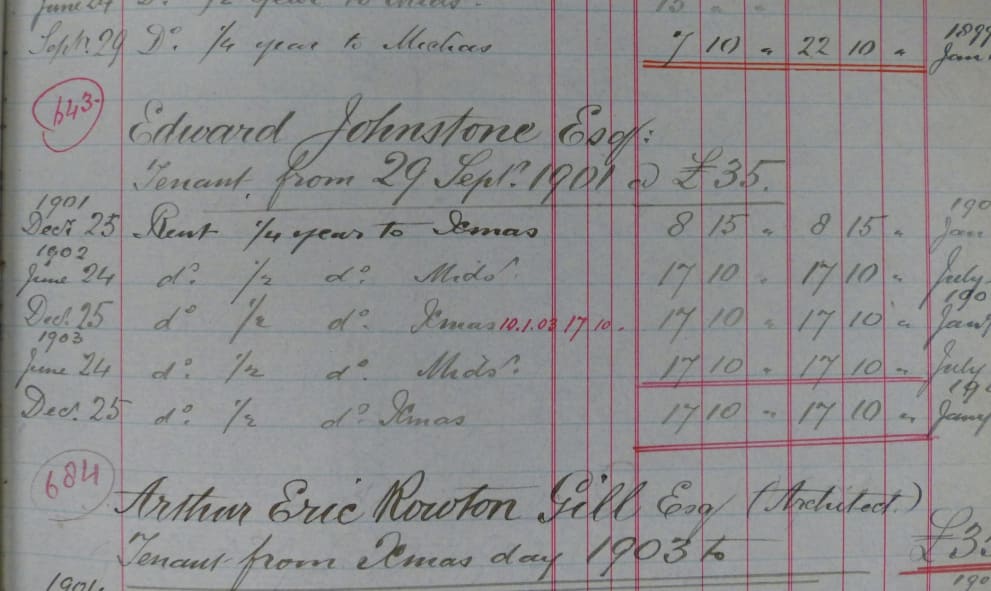 June 24 Do. 1/2 year to Mids. 15 " "
Septr. 29 Do. 1/4 year to Michas 7 10 " 22 10 " 1899 Jan
643
Edward Johnstone Esqr:
Tenant from 29 Septr. 1901 @ £35.
1901
Decr 25 Rent 1/4 year to Xmas 8 15 " 8 15 " Jan
1902
June 24 do. 1/2 do. Midsr. 17 10 " 17 10 " July
Decr. 25 do 1/2 do. Xmas 10.1.03 17 10 . 17 10 " 17 10 " Jany
1903
June 24 do. 1/2 do. Midsr. 17 10 " 17 10 " July
Decr. 25 do. 1/2 do. Xmas 17 10 " 17 10 " Jany
684
Arthur Eric Rowton Gill Esq (Architect.)
Tenant from Xmas day 1903 to £35
1904